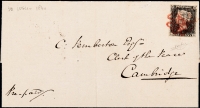 C. Pemberton Esqr
Clerk of the Peace
Cambridge
Pre-paid